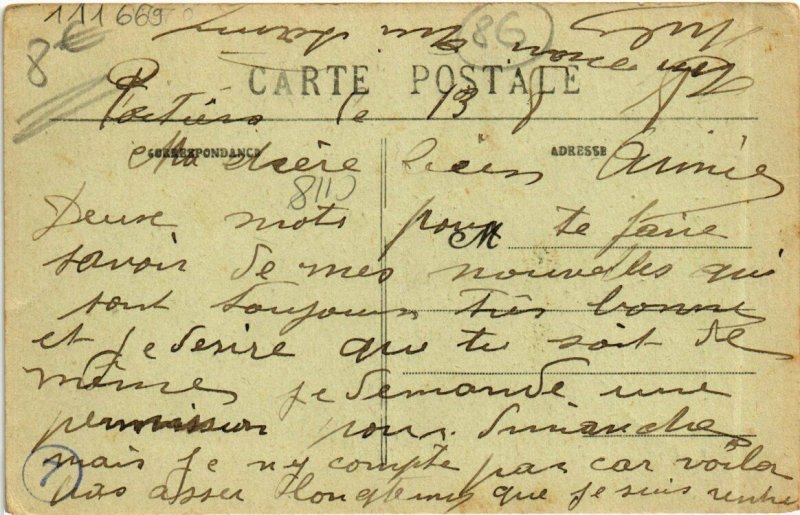 111669
8€
8G
CARTE POSTALE
Poitiers le 13
CORRESPONDANCE
ADRESSE
Ma chère bien Aimée
C118
Deux mots pour te faire
M
savoir de mes nouvelles qui
sont toujours très bonne
et je desire que tu soit de
mêmes je demande une
permission pour dimanche
mais je n'y compte pas car voila
pas asser longtemps que je suis rentré